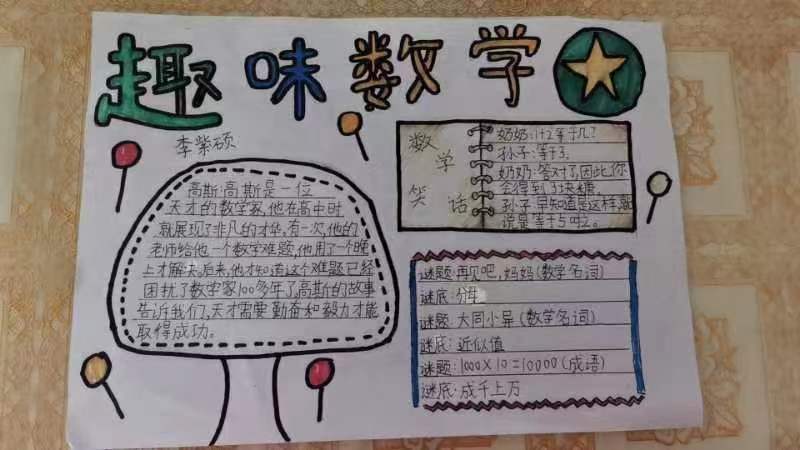 趣味数学
李紫硕
高斯:高斯是一位
天才的数学家,他在高中时
就展现了非凡的才华,有一次,他的
老师给他一个数学难题,他用了一个晚
上才解决,后来,他才知道这个难题已经
困扰了数学家100多年了,高斯的故事
告诉我们,天才需要勤奋和毅力才能
取得成功。
数学笑话
奶奶:1+2等于几?
孙子:等于3,
奶奶:答对了,因此,你
会得到3块糖,
孙子:早知道是这样,就
说是等于5啦。
谜题:再见吧,妈妈(数学名词)
谜底:分母
谜题:大同小异(数学名词)
谜底:近似值
谜题:1000×10=10000(成语)
谜底:成千上万